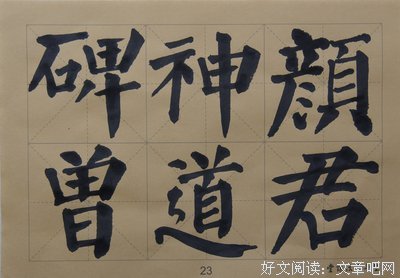 顔君
神道
碑曾
23
好文阅读：文章吧网